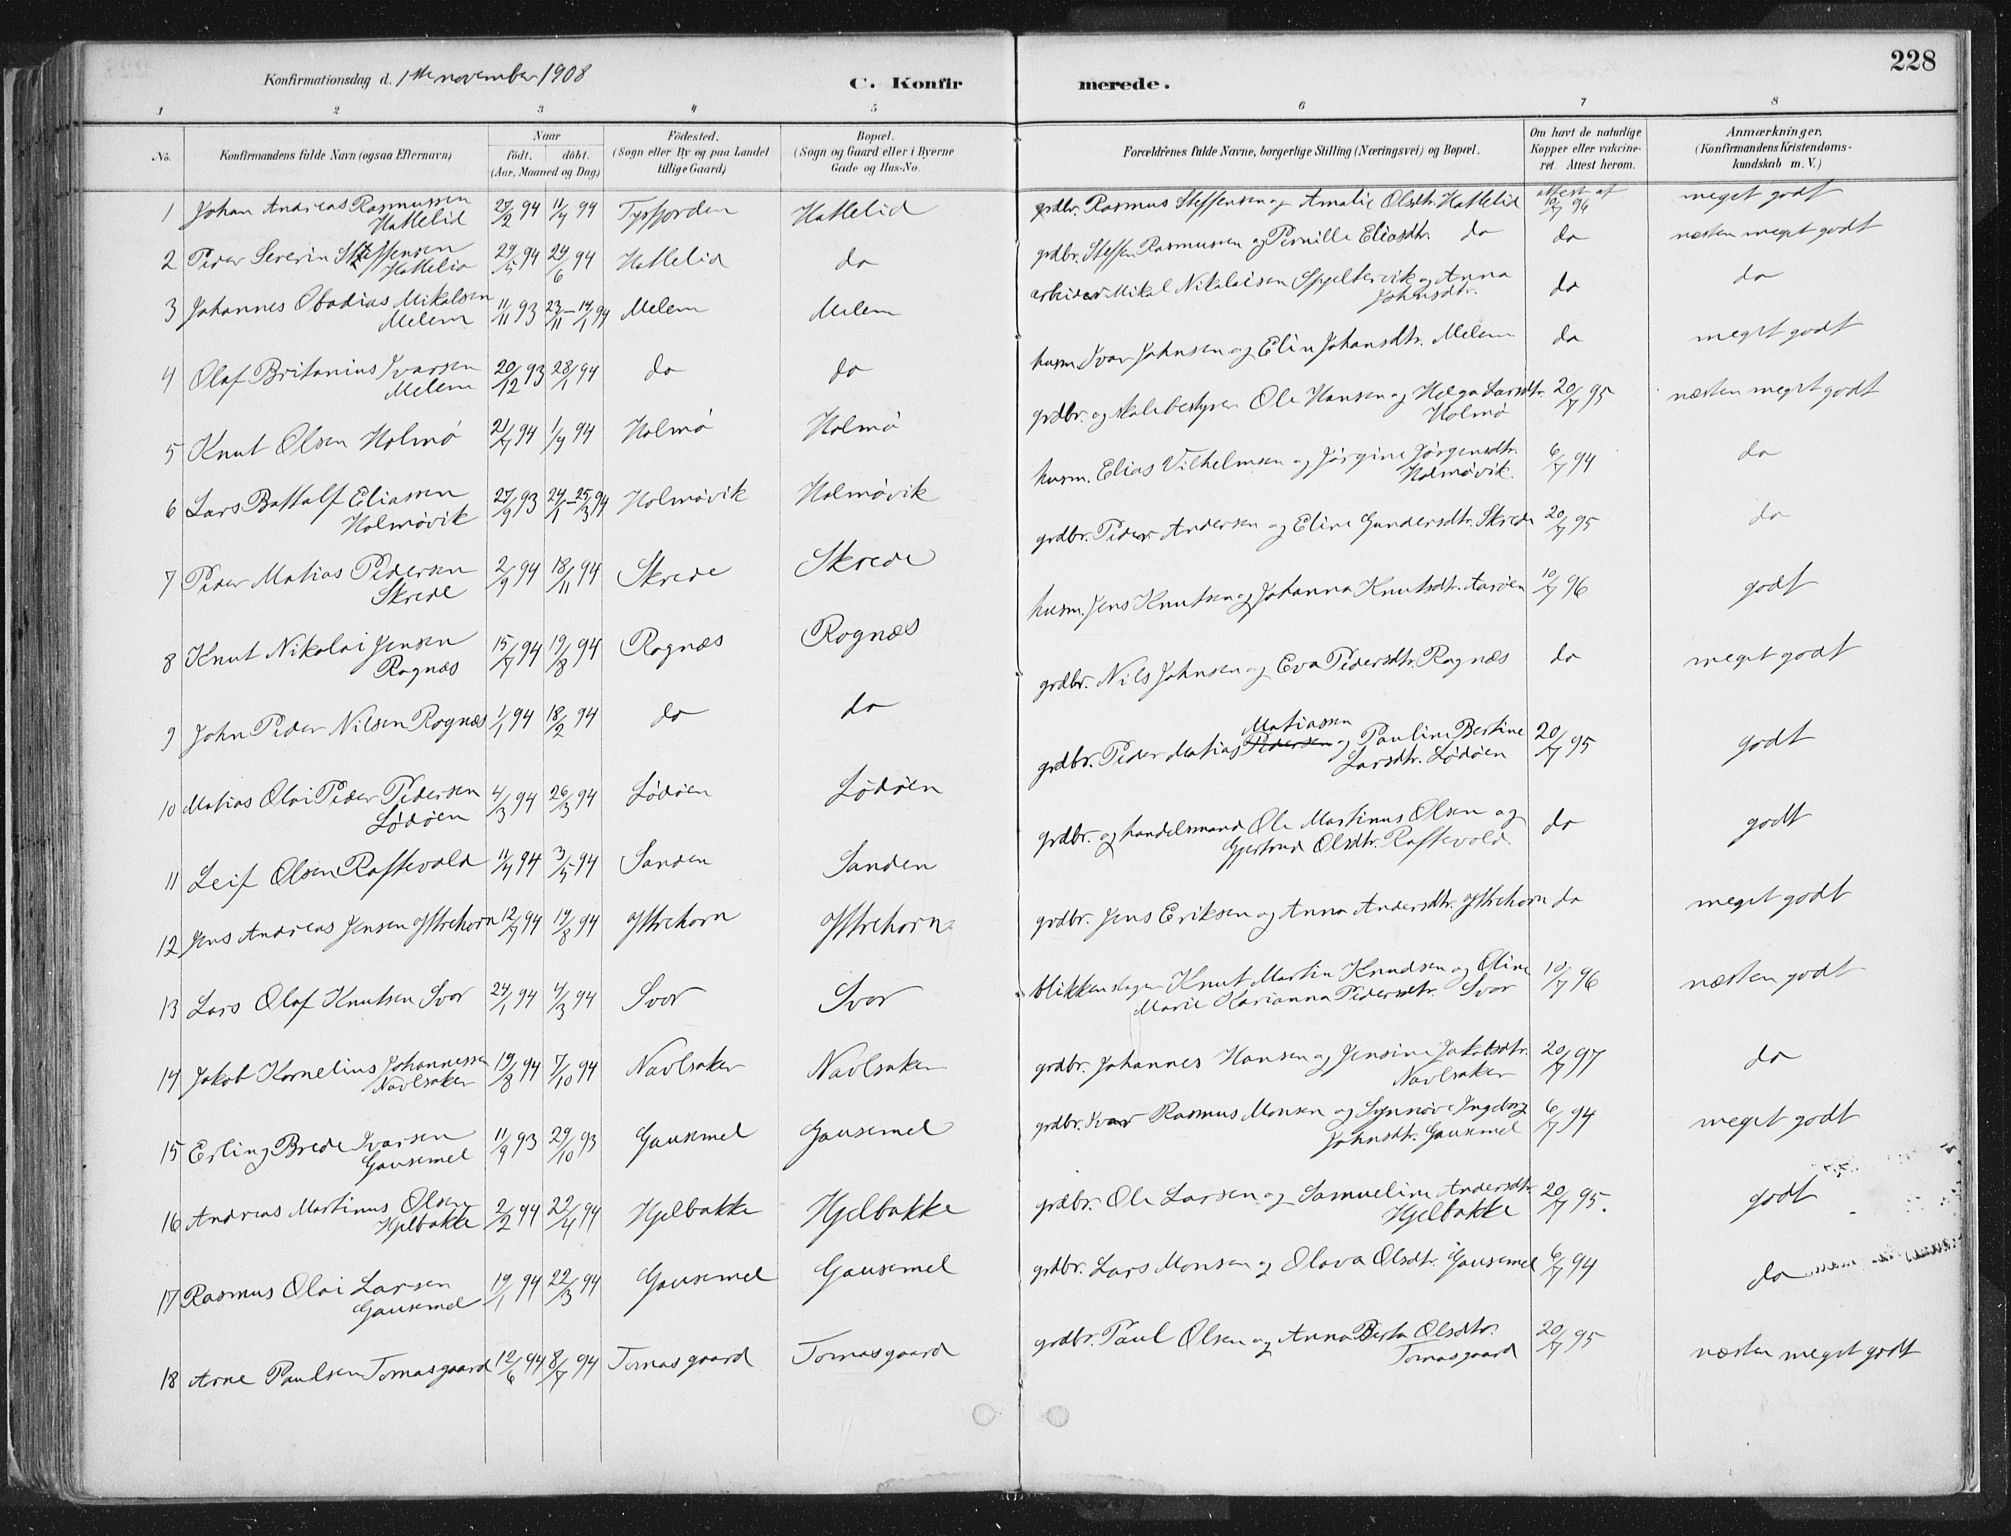 228
Konfirmationsdag d. 1ste november 1908
C. Konfirmerede.
1 2 3 4 5 6 7 8
No.
Konfirmandens fulde Navn (ogsaa Efternavn)
Naar födt. döbt. (Aar, Maaned og Dag)
Födested. (Sogn eller By og paa Landet tillige Gaard)
Bopæl. (Sogn og Gaard eller i Byerne Gade og Hus-No.
Forældrenes fulde Navne, borgerlige Stilling (Næringsvei) og Bopæl.
Om havt de naturlige Kopper eller vaccineret. Attest herom.
Anmærkninger. (Konfirmandens Kristendomskundskab m. V.)
1 Johan Andreas Rasmussen Hattelid 27/2 94 11/4 94 Tysfjorden Hattelid grdbr. Rasmus Steffensen og Amalie Olsdtr. Hattelid attest af 10/7 96 meget godt
2 Peder Severin Steffensen Hattelid 29/5 94 24/6 94 Hattelid do grdbr. Steffen Rasmussen og Pernille Eliasdtr. do do næsten meget godt
3 Johannes Obadias Mikalsen Melem 11/11 93 23/11-14/1 94 Melem Melem arbeider Mikal Nikolaisen Spjeltervik og Anna Johnsdtr. do do
4 Olaf Britanius Ivarsen Melem 20/12 93 28/1 94 do do husm. Ivar Johnsen og Elin Johansdtr. Melem do meget godt
5 Knut Olsen Holmö 21/7 94 1/9 94 Holmö Holmö grdbr. og skolebestyrer Ole Hansen og Helga Larsdtr. Holmö 20/7 95 næsten meget godt
6 Lars Battalf Eliassen Holmövik 27/9 93 24/1-25/3 94 Holmövik Holmövik husm. Elias Vilhelmsen og Jörgine Jörgensdtr. Holmövik. 6/7 94 do
7 Peder Matias Pedersen Skrede 2/9 94 18/11 94 Skrede Skrede grdbr. Peder Andersen og Eline Gundersdtr. Skrede 20/7 95 do
8 Knut Nikolai Jensen Rognæs 15/7 94 19/8 94 Rognæs Rognæs husm. Jens Knutsen og Johanna Knutsdtr. Aaröen 10/7 96 godt
9 John Peder Nilsen Rognæs 1/1 94 18/2 94 do do grdbr. Nils Johnsen og Eva Pedersdtr. Rognæs do meget godt
10 Matias Olai Peder Pedersen Lödöen 4/3 94 26/3 94 Lödöen Lödöen grdbr. Peder Matias Pedersen Matiassen og Pauline Bertine Larsdtr. Lödöen 20/7 95 godt
11 Leif Olsen Raftevold 11/4 94 3/5 94 Sanden Sanden grdbr. og handelsmand Ole Martinus Olsen og Gjertrud Olsdtr. Raftevold. do godt
12 Jens Andreas Jensen Yttrehorn 12/7 94 19/8 94 Yttrehorn Yttrehorn grdbr. Jens Eriksen og Anna Andersdtr. Yttrehorn do meget godt
13 Lars Olaf Knutsen Svor 24/1 94 4/3 94 Svor Svor blikkenslager Knut Martin Knudsen og Oline Marie Karianna Pedersdtr. Svor 10/7 96 næsten godt
14 Jakob Kornelius Johannessen Navlsaker 19/8 94 7/10 94 Navlsaker Navlsaker grdbr. Johannes Hansen og Jensine Jakobsdtr. Navlsaker 20/7 97 do
15 Erling Brede Ivarsen Gausemel 11/9 93 29/10 93 Gausemel Gausemel grdbr. Ivar Rasmus Monsen og Synnöve Ingeborg Johnsdtr. Gausemel 6/7 94 meget godt
16 Andreas Martinus Olsen Hjelbakke 2/2 94 22/4 94 Hjelbakke Hjelbakke grdbr. Ole Larsen og Samueline Andersdtr. Hjelbakke 20/7 95. godt
17 Rasmus Olai Larsen Gausemel 19/1 94 22/3 94 Gausemel Gausemel grdbr. Lars Monsen og Olava Olsdtr. Gausemel 6/7 94 do
18 Arne Paulsen Tomasgaard 12/6 94 8/7 94 Tomasgaard Tomasgaard grdbr. Paul Olsen og Anna Berta Olsdtr. Tomasgaard 20/7 95 næsten meget godt